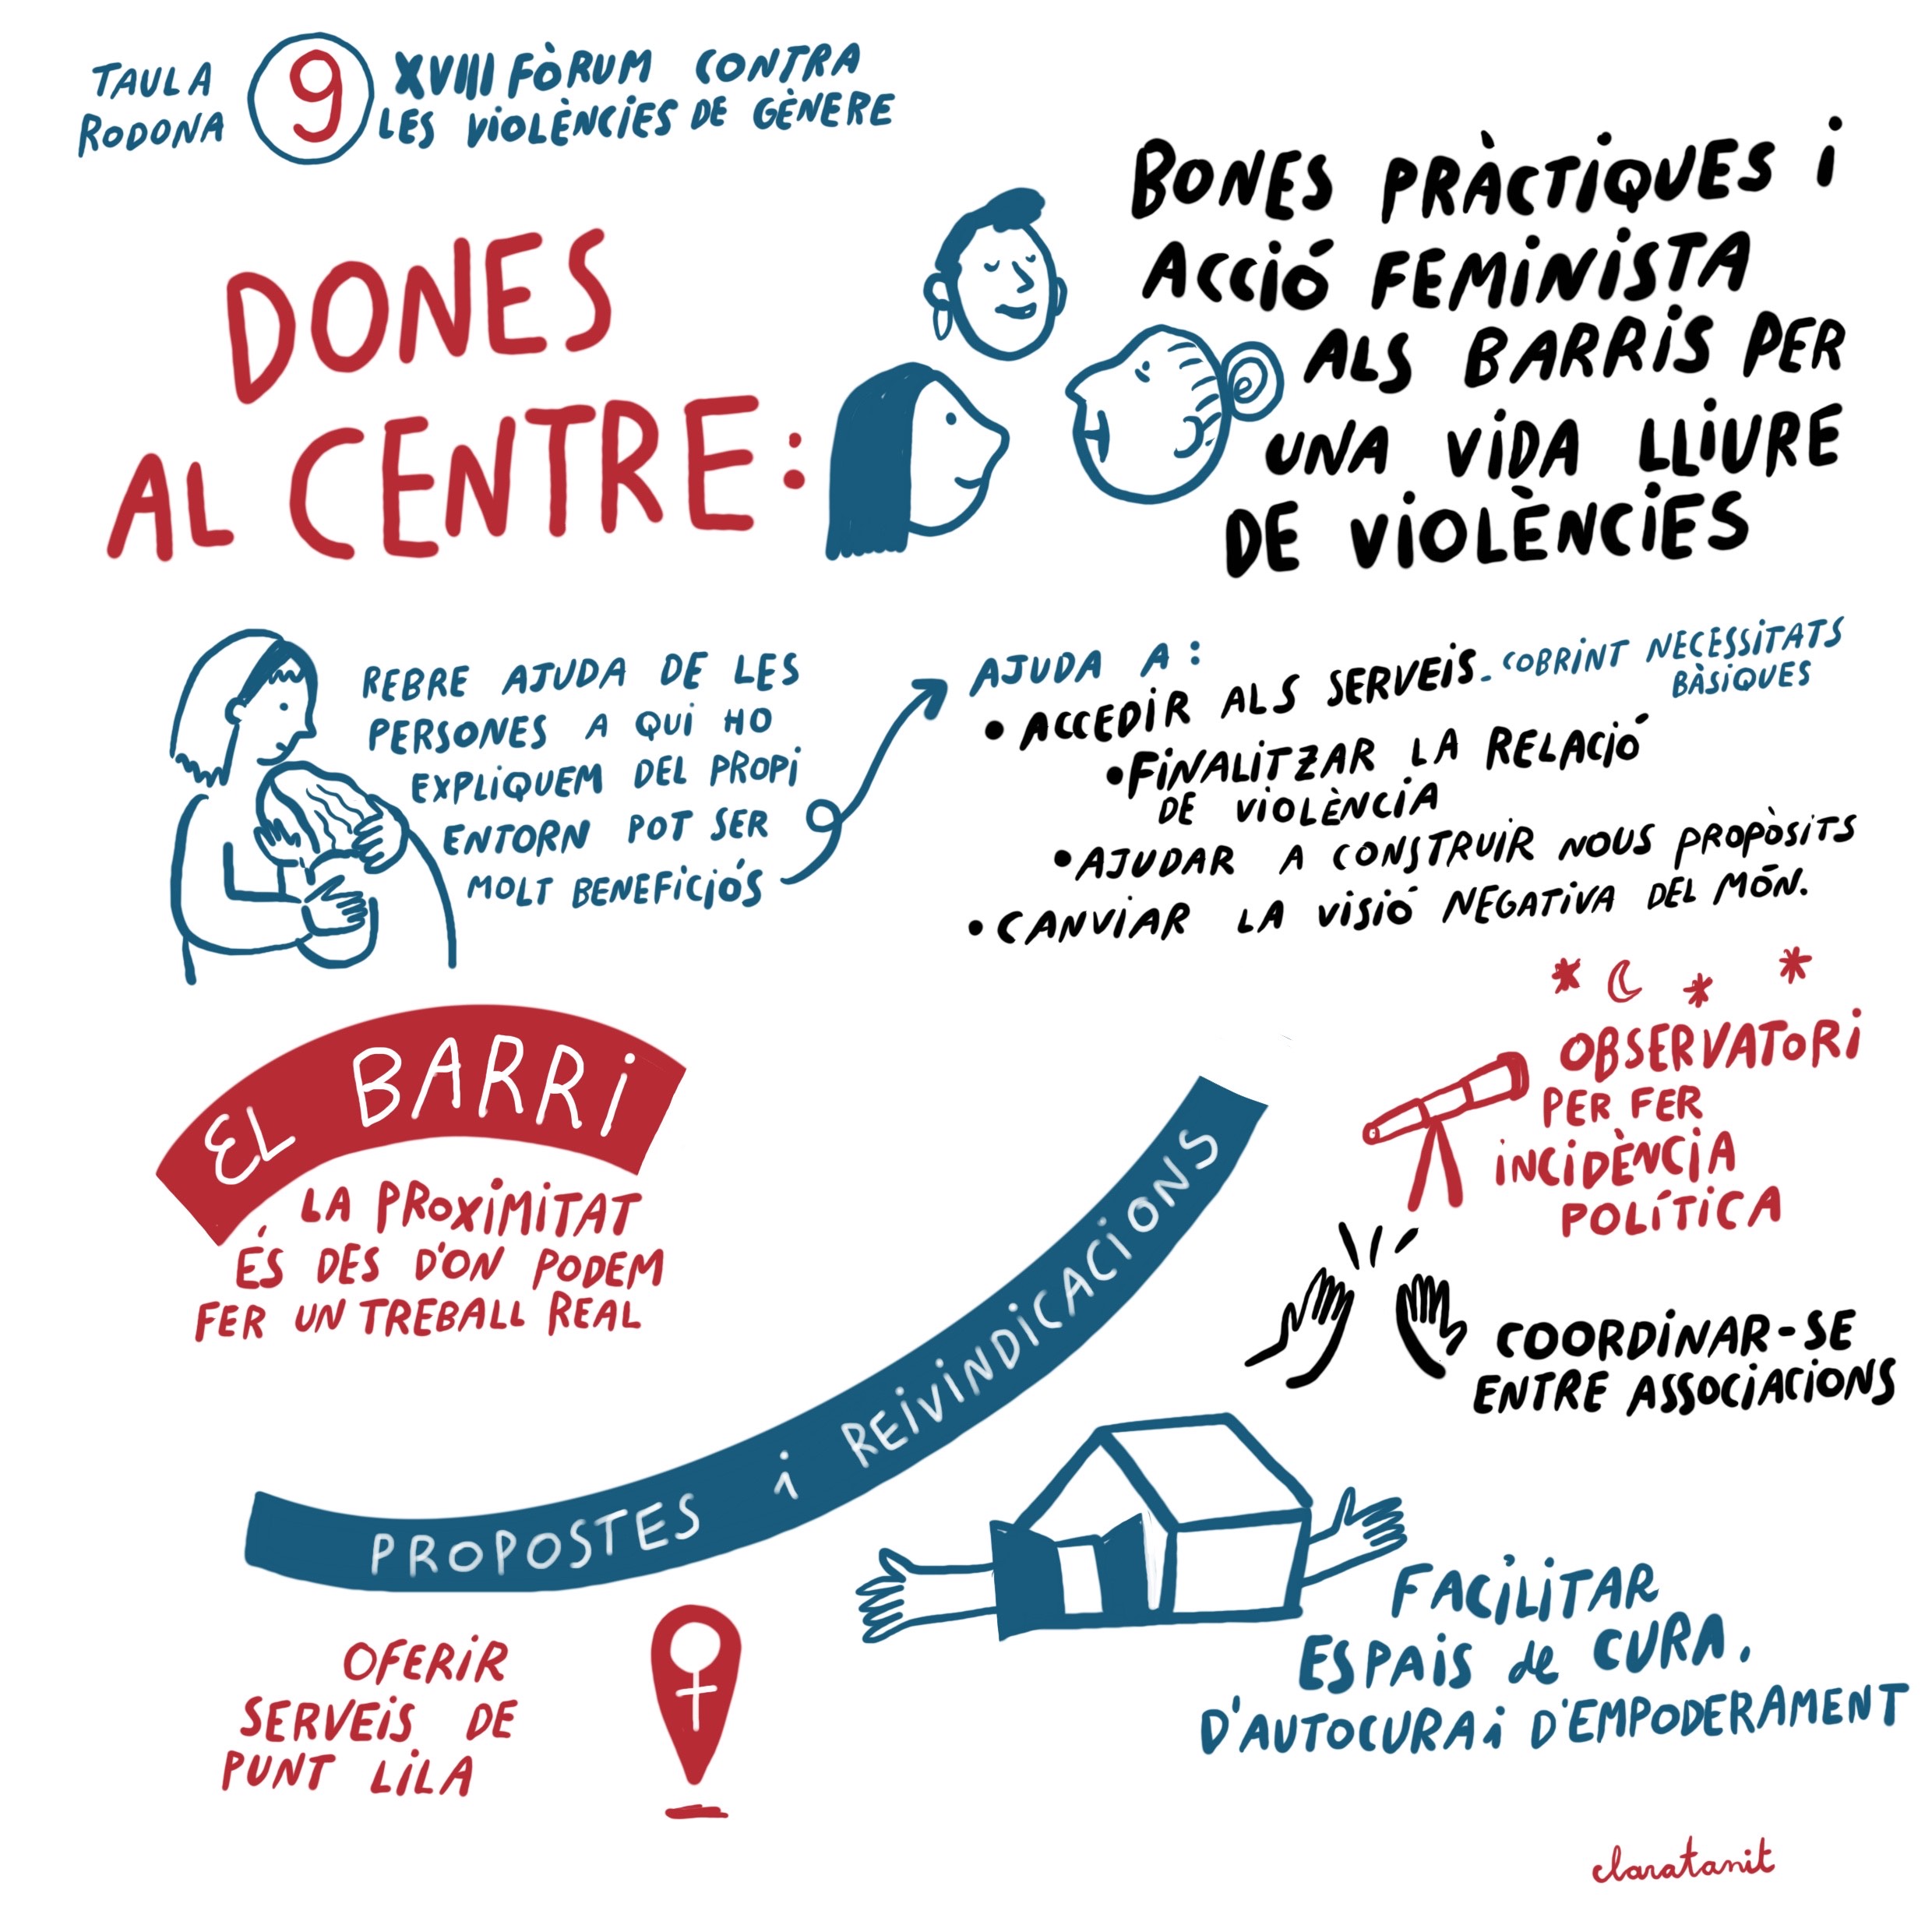 TAULA
RODONA
9
XVIII FÒRUM CONTRA
LES VIOLÈNCIES DE GÈNERE
DONES
AL CENTRE:
BONES PRÀCTIQUES i
ACCIÓ FEMINISTA
ALS BARRIS PER
UNA VIDA LLIURE
DE VIOLÈNCIES
REBRE AJUDA DE LES
PERSONES A QUI HO
EXPLIQUEM DEL PROPI
ENTORN POT SER
MOLT BENEFICIÓS
AJUDA A:
• ACCEDIR ALS SERVEIS. COBRINT NECESSITATS
BÀSIQUES
• FINALITZAR LA RELACIÓ
DE VIOLÈNCIA
• AJUDAR A CONSTRUIR NOUS PROPÒSITS
• CANVIAR LA VISIÓ NEGATIVA DEL MÓN.
EL BARRI
LA PROXIMITAT
ÉS DES D'ON PODEM
FER UN TREBALL REAL
PROPOSTES i REIVINDICACIONS
OBSERVATORI
PER FER
INCIDÈNCIA
POLÍTICA
COORDINAR-SE
ENTRE ASSOCIACIONS
FACILITAR
ESPAIS de CURA,
D'AUTOCURA i D'EMPODERAMENT
OFERIR
SERVEIS DE
PUNT LILA
claratanit